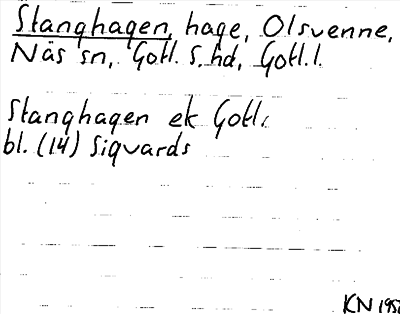 Stanghagen, hage, Olsvenne,
Näs sn, Gotl. S. hd, Gotl. l.
Stanghagen ek Gotl.
bl. (14) Sigvards
KN